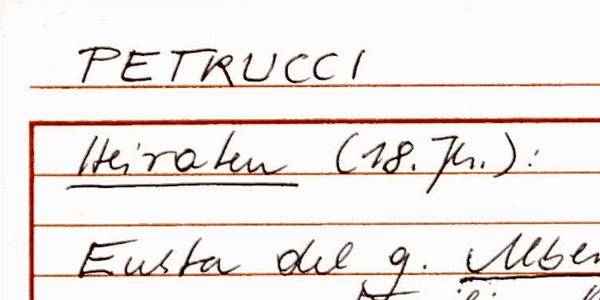 PETRUCCI
Heiraten (18. Jh.):
Eusta del q.